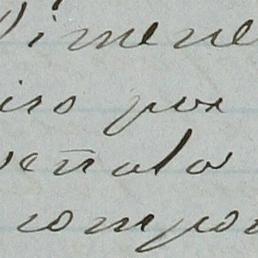 Jimene
iso por
señala
compo